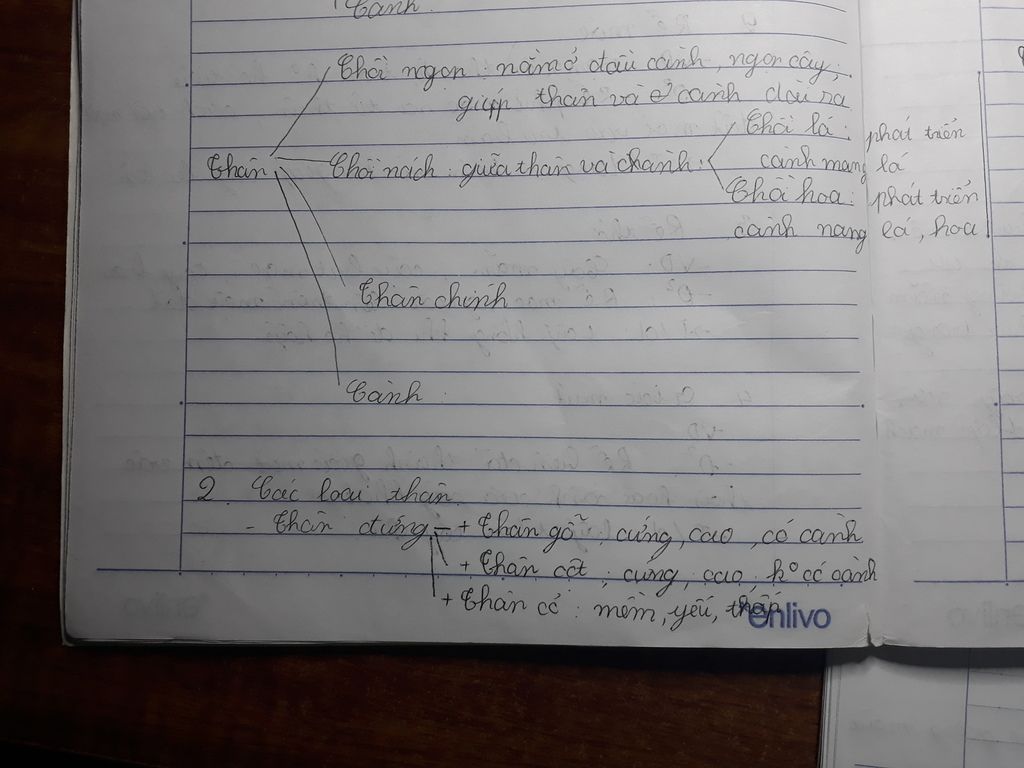 Cành
Chồi ngọn : nằm ở đầu cành, ngọn cây,
giúp thân và cành dài ra
Chồi lá : phát triển
Thân
Chồi nách : giữa thân và cành :
cành mang lá
Chồi hoa : phát triển
cành mang lá, hoa
Thân chính
Cành :
2. Các loại thân
- Thân đứng + Thân gỗ : cứng, cao, có cành
+ Thân cột : cứng, cao, ko có cành
+ Thân cỏ : mềm, yếu, thấp
enlivo